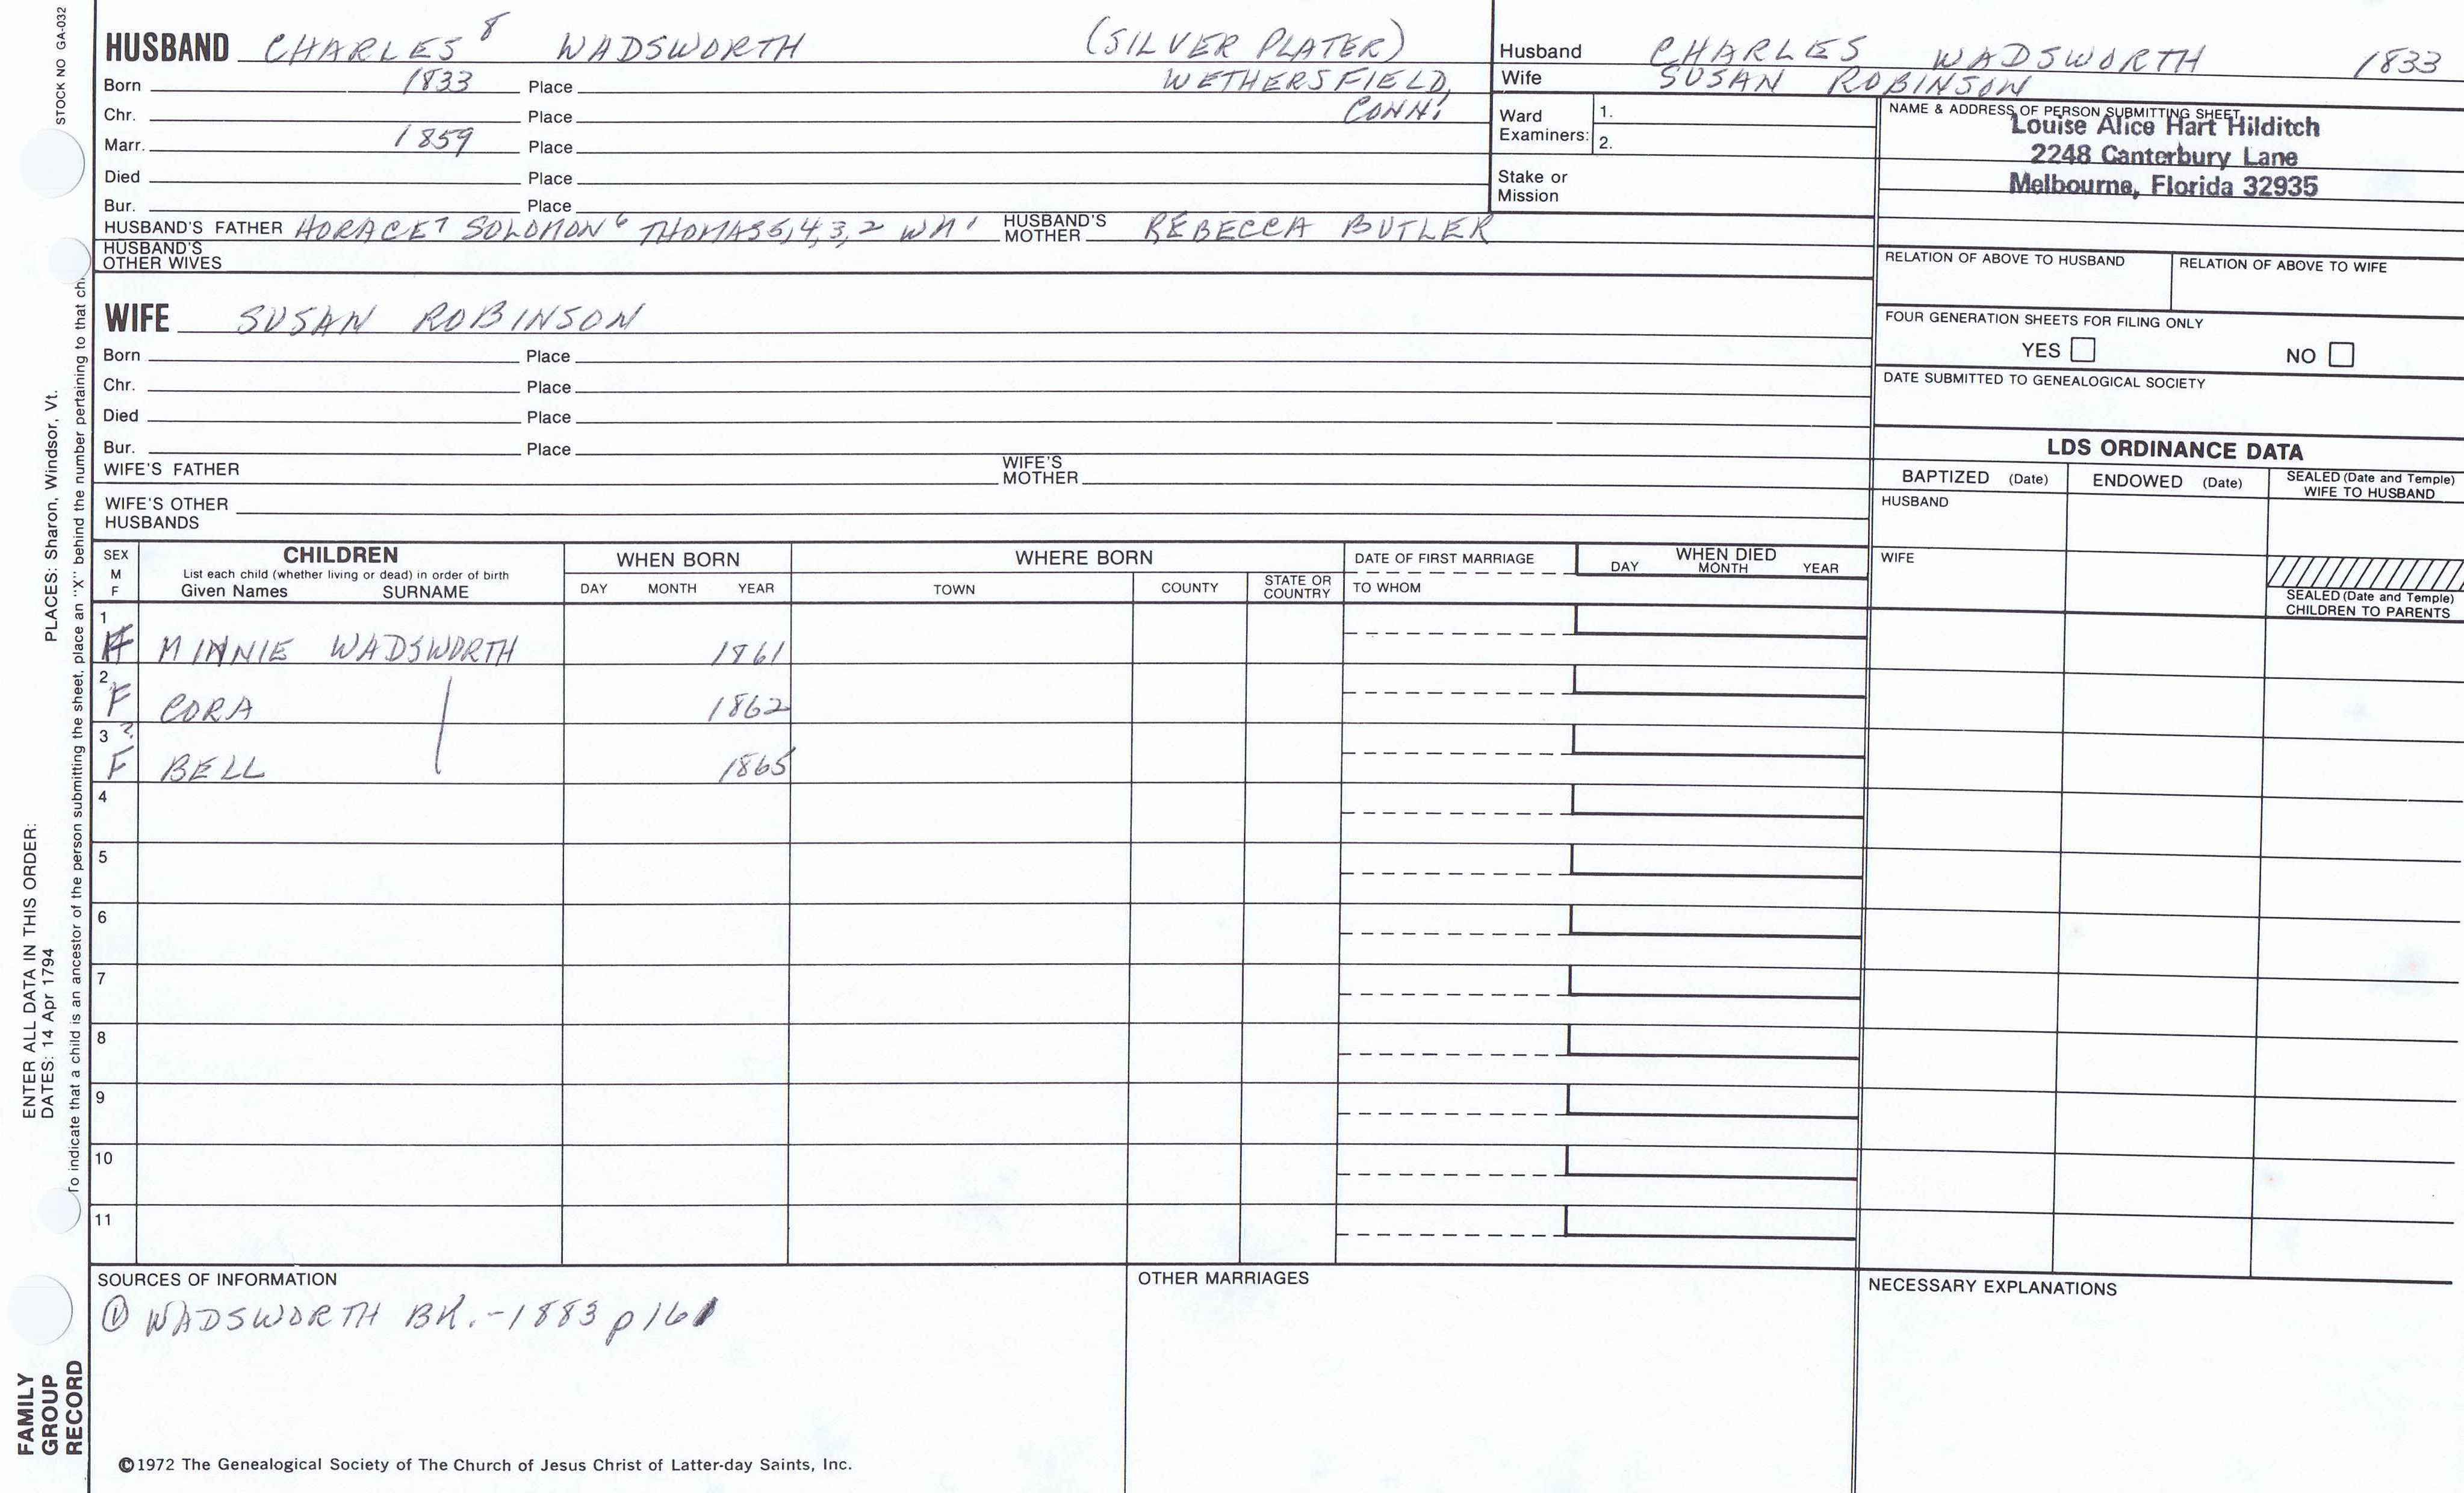 STOCK NO GA-032
HUSBAND CHARLES 8 WADSWORTH (SILVER PLATER)
Born 1833 Place WETHERSFIELD,
Chr. Place CONN.
Marr. 1859 Place
Died Place
Bur. Place
HUSBAND'S FATHER HORACE7 SOLOMON6 THOMAS5,4,3,2 WM' HUSBAND'S MOTHER REBECCA BUTLER
HUSBAND'S OTHER WIVES
WIFE SUSAN ROBINSON
Born Place
Chr. Place
Died Place
Bur. Place
WIFE'S FATHER WIFE'S MOTHER
WIFE'S OTHER HUSBANDS
Husband CHARLES WADSWORTH 1833
Wife SUSAN ROBINSON
Ward Examiners: 1.
2.
Stake or Mission
NAME & ADDRESS OF PERSON SUBMITTING SHEET
Louise Alice Hart Hilditch
2248 Canterbury Lane
Melbourne, Florida 32935
RELATION OF ABOVE TO HUSBAND RELATION OF ABOVE TO WIFE
FOUR GENERATION SHEETS FOR FILING ONLY
YES NO
DATE SUBMITTED TO GENEALOGICAL SOCIETY
LDS ORDINANCE DATA
BAPTIZED (Date) ENDOWED (Date) SEALED (Date and Temple) WIFE TO HUSBAND
HUSBAND
WIFE
SEALED (Date and Temple) CHILDREN TO PARENTS
SEX M F
CHILDREN
List each child (whether living or dead) in order of birth
Given Names SURNAME
WHEN BORN
DAY MONTH YEAR
WHERE BORN
TOWN COUNTY STATE OR COUNTRY
DATE OF FIRST MARRIAGE
TO WHOM
WHEN DIED
DAY MONTH YEAR
1 F MINNIE WADSWORTH 1861
2 F CORA 1862
3 ? F BELL 1865
4
5
6
7
8
9
10
11
SOURCES OF INFORMATION
① WADSWORTH BK. - 1883 p 161
OTHER MARRIAGES
NECESSARY EXPLANATIONS
©1972 The Genealogical Society of The Church of Jesus Christ of Latter-day Saints, Inc.
FAMILY GROUP RECORD
ENTER ALL DATA IN THIS ORDER:
DATES: 14 Apr 1794
PLACES: Sharon, Windsor, Vt.
To indicate that a child is an ancestor of the person submitting the sheet, place an "X" behind the number pertaining to that